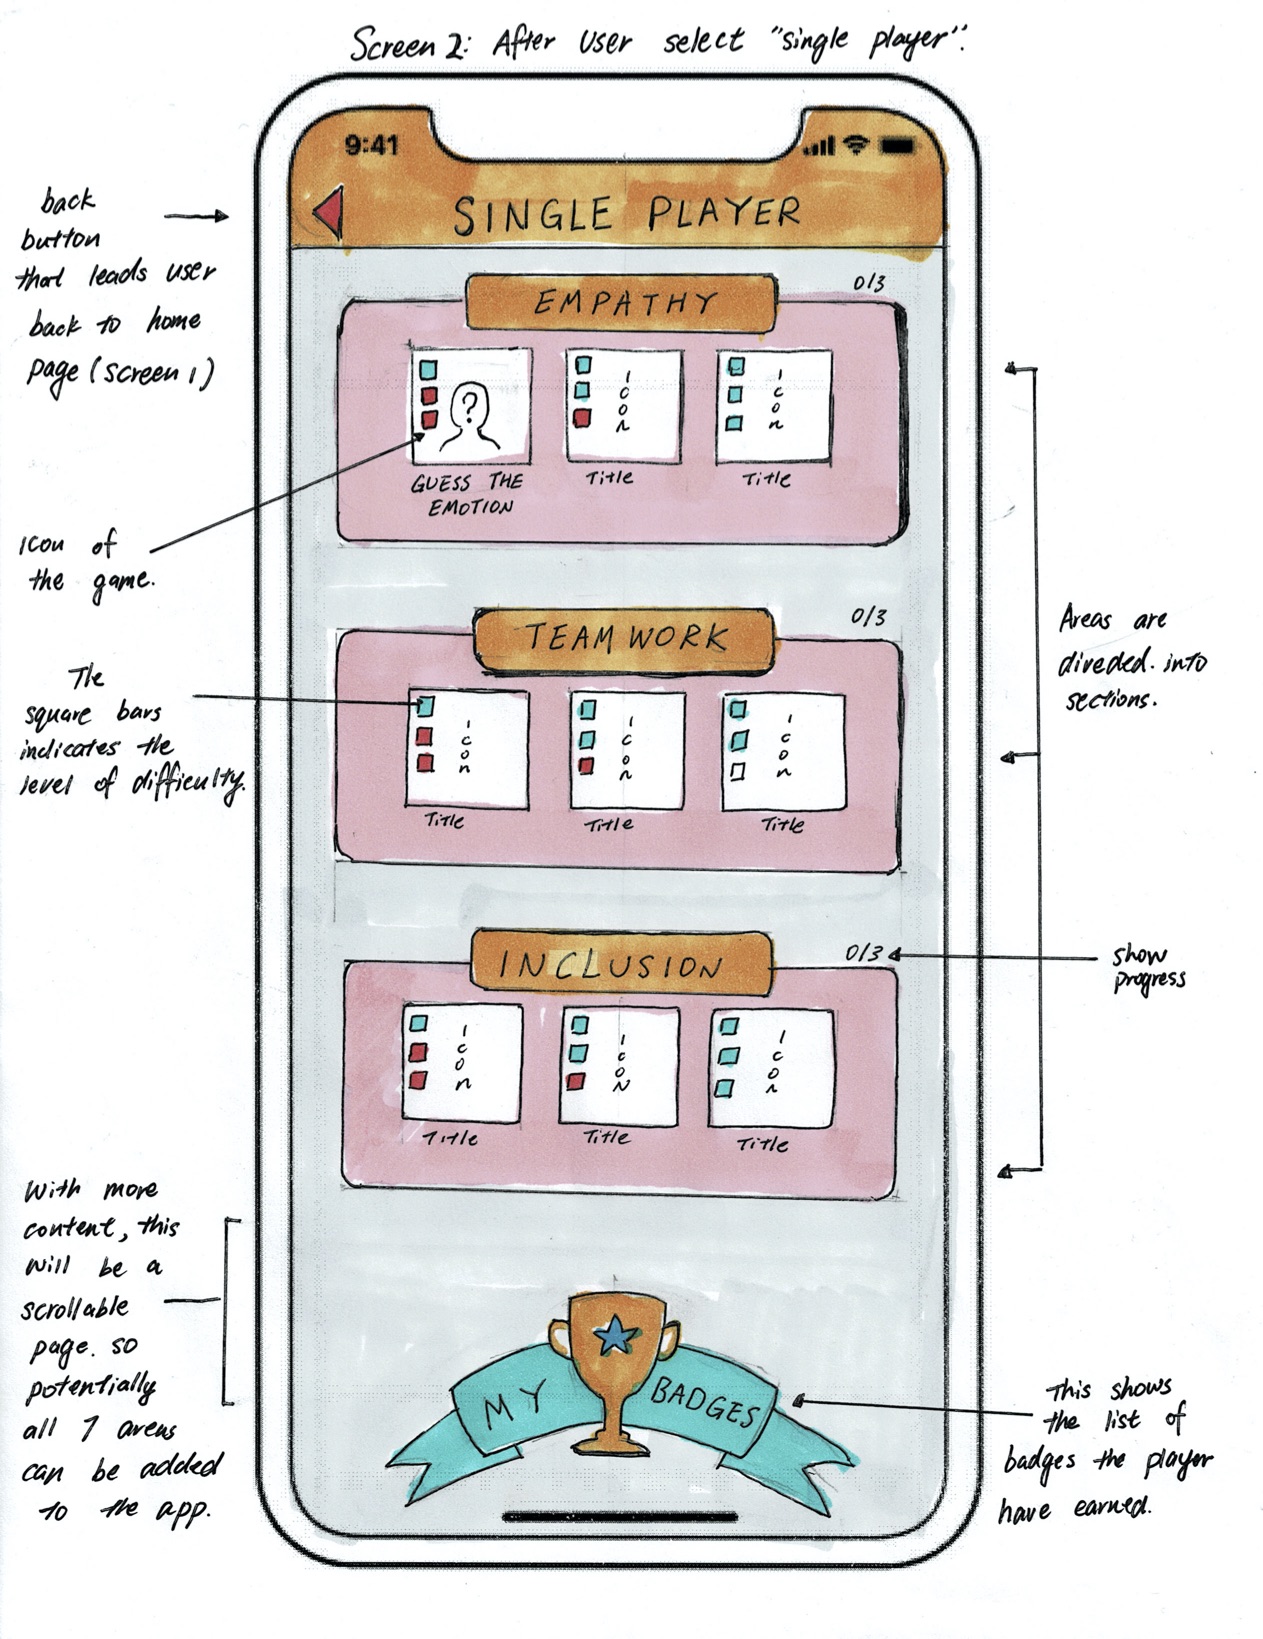 Screen 2: After User select "single player".
9:41
SINGLE PLAYER
back
button
that leads user
back to home
page (screen 1)
EMPATHY
0/3
?
I
c
o
n
I
c
o
n
GUESS THE
EMOTION
Title
Title
icon of
the game.
TEAM WORK
0/3
The
square bars
indicates the
level of difficulty.
I
c
o
n
I
c
o
n
I
c
o
n
Title
Title
Title
Areas are
diveded. into
sections.
INCLUSION
0/3
show
progress
I
c
o
n
I
c
o
N
I
c
o
n
Title
Title
Title
With more
content, this
will be a
scrollable
page. so
potentially
all 7 areas
can be added
to the app.
MY BADGES
This shows
the list of
badges the player
have earned.